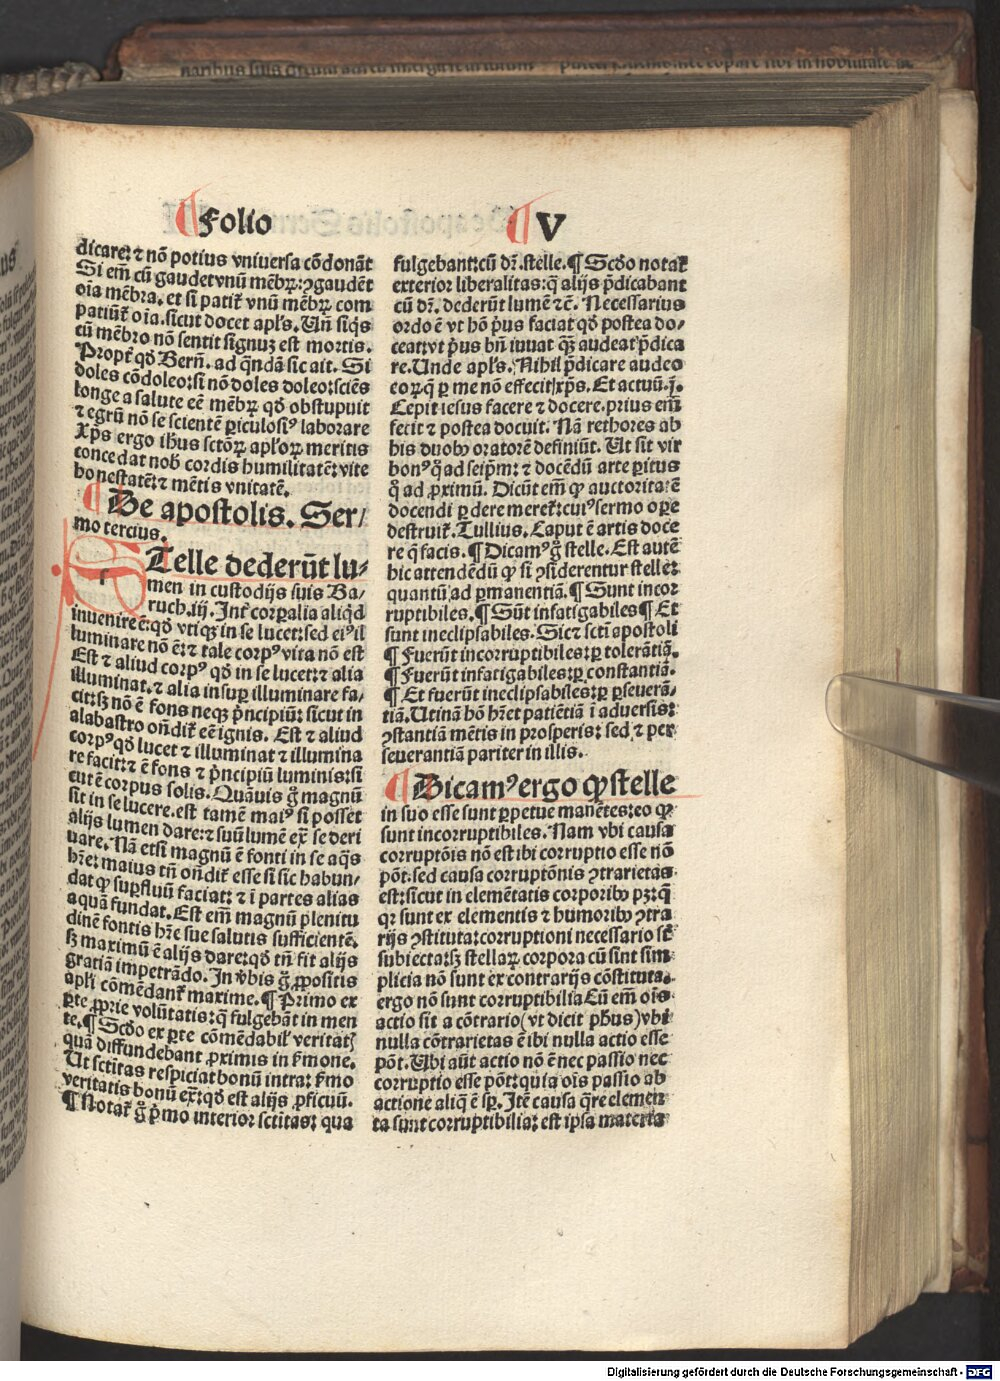 ¶ Folio
¶ V
dicare: ⁊ nõ potius vniuersa cõdonãt
Si em̃ cũ gaudet vnũ mẽbꝝ: ꝯgaudẽt
oĩa mẽbra. et si patit᷑ vnũ mẽbꝝ com
patiũt᷑ oĩa. sicut docet apl's. Uñ siq̃s
cũ mẽbro nõ sentit signuꝫ est mortis.
Propt᷑ qđ Berñ. ad q̃ndã sic ait. Si
doles cõdoleo: si nõ doles doleo: sciẽs
longe a salute eẽ mẽbꝝ qđ obstupuit
⁊ egrũ nõ se scientẽ ꝑiculosiꝰ laborare
Xp̃s ergo ih̃us sctõꝝ apl'oꝝ meritis
concedat nob̃ cordis humilitatẽ: vite
honestatẽ: ⁊ mẽtis vnitatẽ.
¶ De apostolis. Ser/
mo tercius.
STelle dederũt lu/
men in custodijs suis Ba/
ruch. iij. Int᷑ corꝑalia aliqđ
inuenire ẽ: qđ vtiqꝫ in se lucet: sed eiꝰ il
luminare nõ ẽ: ⁊ tale corpꝰ vita nõ est
Est ⁊ aliud corpꝰ qđ in se lucet: ⁊ alia
illuminat. ⁊ alia insuꝑ illuminare fa/
cit: sꝫ nõ ẽ fons neqꝫ p̃ncipiũ: sicut in
alabastro oñdit᷑ eẽ ignis. Est ⁊ aliud
corpꝰ qđ lucet ⁊ illuminat ⁊ illumina
re facit: ⁊ ẽ fons ⁊ p̃ncipiũ luminis: si
cut ẽ corpus solis. Quãuis g̃ magnũ
sit in se lucere. est tamẽ maiꝰ si posset
alijs lumen dare: ⁊ suũ lumẽ ex̃ se deri
uare. Nã etsi magnũ ẽ fonti in se aq̃s
hr̃e: maius tñ oñdit᷑ esse si sic habun/
dat ꝙ suꝑfluũ faciat: ⁊ ĩ partes alias
aquã fundat. Est em̃ magnũ plenitu
dinẽ fontis hr̃e sue salutis sufficientẽ.
sꝫ maximũ ẽ alijs dare: qđ tñ fit alijs
gratiã impetrãdo. In v̾bis g̃ ꝓpositis
apl'i cõmẽdant᷑ maxime. ¶ Primo ex
ꝑte ꝓprie volũtatis: q̃ fulgebãt in men
te. ¶ Scđo ex ꝑte cõmẽdabil' veritatꝭ
quã diffundebant ꝓximis in s̾mone.
Ut sctĩtas respiciat bonũ intra: s̾mo
veritatis bonũ ex̾: qđ est alijs ꝓficuũ.
¶ Notat᷑ g̃ p̃mo interior sctĩtas: qua
fulgebant: cũ dr̃. stelle. ¶ Scđo notat᷑
exterior liberalitas: q̃ alijs p̃dicabant
cũ dr̃. dederũt lumẽ ⁊c̃. Necessarius
ordo ẽ vt hõ p̾us faciat qđ postea do/
ceat: vt p̾us bñ iuuat qꝫ audeat p̃dica
re. Unde apl's. Nihil p̃dicare audeo
eoꝝ q̃ ꝑ me nõ effecit xp̃s. Et actuũ. j̃.
Cepit iesus facere ⁊ docere. prius em̃
fecit ⁊ postea docuit. Nã rethores ab
his duobꝰ oratorẽ definiũt. Ut sit vir
bonꝰ q̊ ad seip̃m: ⁊ docẽdũ arte ꝑitus
q̊ ad ꝓximũ. Dicũt em̃ ꝙ auctoritas ẽ
docendi ꝑdere meret᷑: cuiꝰ sermo oꝑe
destruit᷑. Tullius. Caput ẽ artis doce
re q̃ facis. ¶ Dicamꝰ g̃ stelle. Est autẽ
hic attendẽdũ ꝙ si ꝯsiderentur stelle:
quantũ ad ꝑmanentiã. ¶ Sunt incor
ruptibiles. ¶ Sũt infatigabiles ¶ Et
sunt ineclipsabiles. Sic ⁊ sctĩ apostoli
¶ Fuerũt incorruptibiles: ꝑ tolerãtiã.
¶ Fuerũt infatigabiles: ꝑ constantiã.
¶ Et fuerũt ineclipsabiles: ꝑ ꝑseuerã/
tiã. Utinã hõ hr̃et patiẽtiã ĩ aduersis:
ꝯstantiã mẽtis in prosperis: sed ⁊ per
seuerantiã pariter in illis.
¶ Dicamꝰ ergo ꝙ stelle
in suo esse sunt perpetue manẽtes: eo ꝙ
sunt incorruptibiles. Nam vbi causa
corruptõis nõ est ibi corruptio esse nõ
põt. sed causa corruptõnis ꝯtrarietas
est: sicut in elemẽtatis corporibꝰ pꝫ: q̃
qꝛ sunt ex elementis ⁊ humoribꝰ ꝯtra
rijs ꝯstituta: corruptioni necessario st̃
subiecta: sꝫ stellaꝝ corpora cũ sint sim
plicia nõ sunt ex contrarijs cõstituta.
ergo nõ sunt corruptibilia Cũ em̃ oĩs
actio sit a cõtrario (vt dicit ph̃us) vbi
nulla cõtrarietas ẽ ibi nulla actio esse
põt. Ubi aũt actio nõ ẽ nec passio nec
corruptio esse põt: quia oĩs passio ab
actione aliq̃ ẽ sꝑ. Itẽ causa q̃re elemen
ta sunt corruptibilia: est ipsa materia
Digitalisierung gefördert durch die Deutsche Forschungsgemeinschaft - DFG